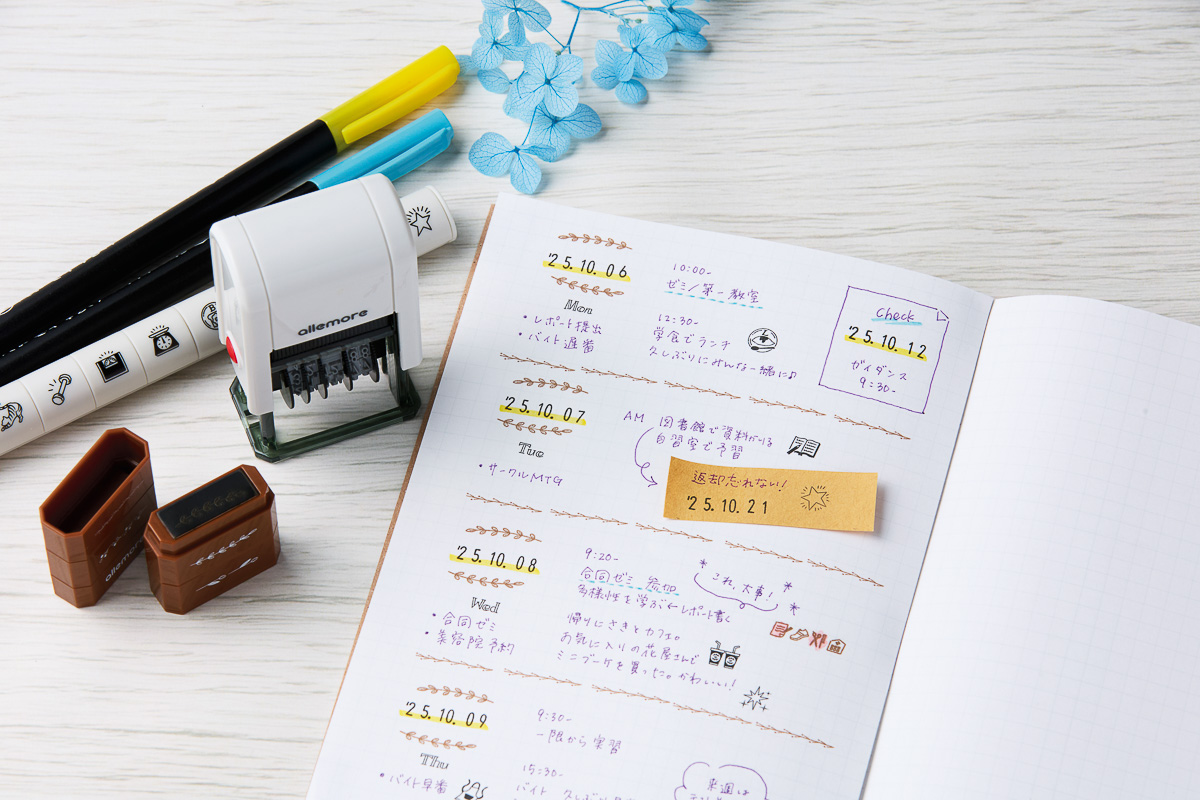 allemore
allemore
'25.10.06
Mon
・レポート提出
・バイト遅番
10:00-
ゼミ/第一教室
12:30-
学食でランチ
久しぶりにみんな一緒に♪
Check
'25.10.12
ガイダンス
9:30-
'25.10.07
Tue
・サークルMTG
AM 図書館で資料かりる
自習室で予習
返却忘れない!
'25.10.21
'25.10.08
Wed
・合同ゼミ
・美容院予約
9:20-
合同ゼミ 参加
多様性を学ぶ←レポート書く
これ、大事!
帰りにさきとカフェ。
お気に入りの花屋さんで
ミニブーケを買った。かわいい!
'25.10.09
Thu
・バイト早番
9:30-
一限から実習
15:30-
バイト 久しぶり
来週は